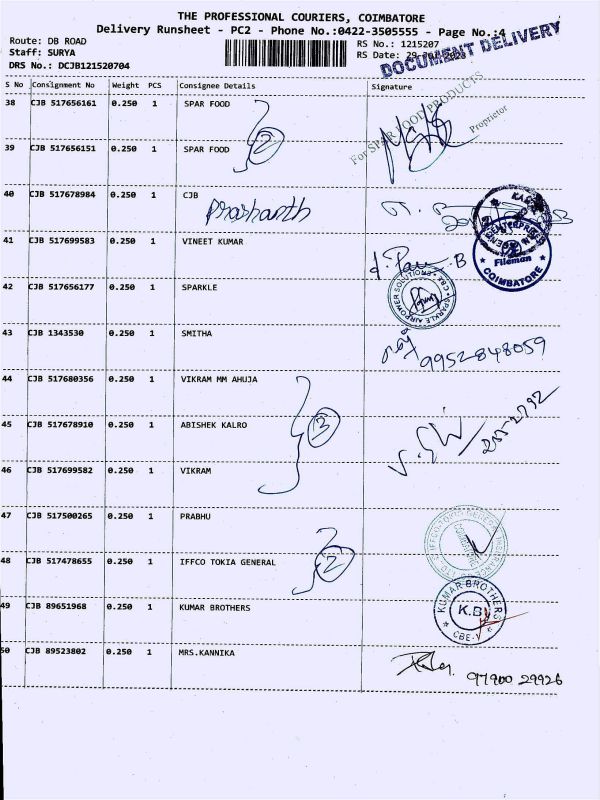 THE PROFESSIONAL COURIERS, COIMBATORE
Delivery Runsheet - PC2 - Phone No.:0422-3505555 - Page No.:4
Route: DB ROAD
Staff: SURYA
DRS No.: DCJB121520704
RS No.: 1215207
RS Date: 29-
DOCUMENT DELIVERY
S No Consignment No Weight PCS Consignee Details Signature
38 CJB 517656161 0.250 1 SPAR FOOD
For SPAR FOOD PRODUCTS
Proprietor
2
39 CJB 517656151 0.250 1 SPAR FOOD
40 CJB 517678984 0.250 1 CJB
Prashanth
41 CJB 517699583 0.250 1 VINEET KUMAR
ENTERPRISES
Fileman
COIMBATORE
42 CJB 517656177 0.250 1 SPARKLE
SPARKLE AIRPOWER SOLUTIONS
43 CJB 1343530 0.250 1 SMITHA
9952848059
44 CJB 517680356 0.250 1 VIKRAM MM AHUJA
3
45 CJB 517678910 0.250 1 ABISHEK KALRO
46 CJB 517699582 0.250 1 VIKRAM
47 CJB 517500265 0.250 1 PRABHU
48 CJB 517478655 0.250 1 IFFCO TOKIA GENERAL
2
49 CJB 89651968 0.250 1 KUMAR BROTHERS
KUMAR BROTHERS
K.B
CBE-
50 CJB 89523802 0.250 1 MRS.KANNIKA
97900 29926